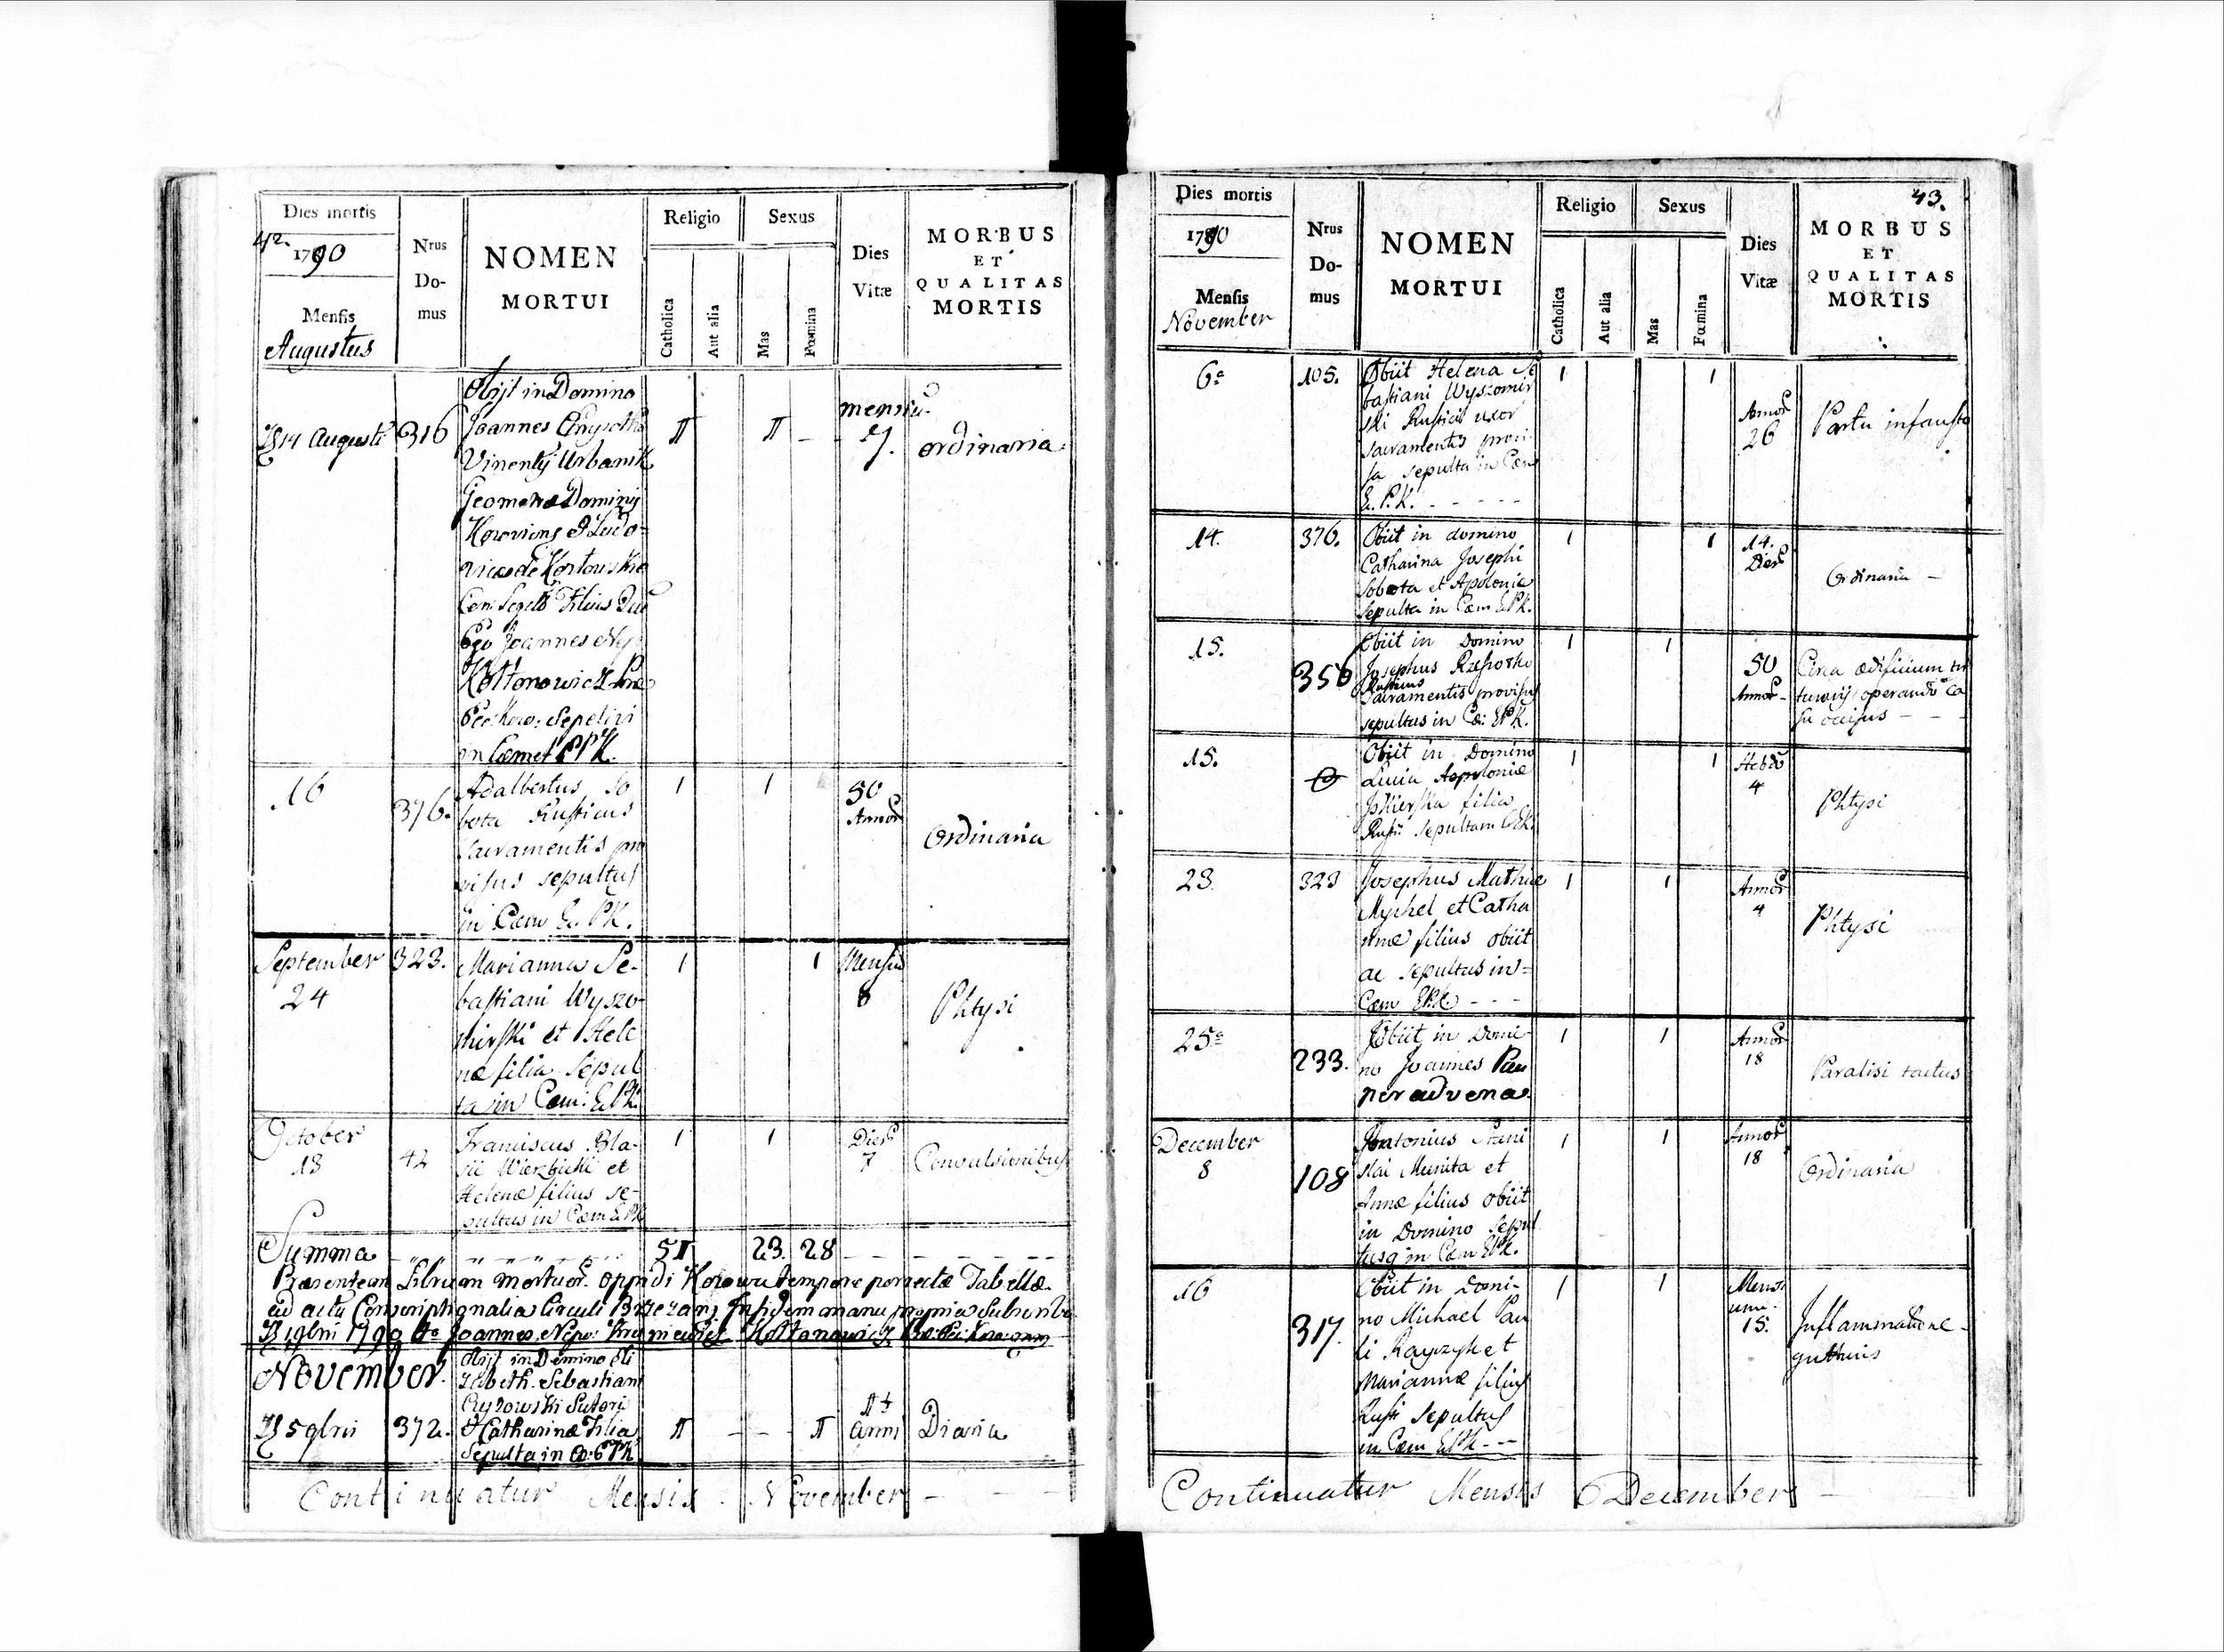 42.
Dies mortis
1790
Mensis
Augustus
Nrus
Do-
mus
NOMEN
MORTUI
Religio
Catholica
Aut alia
Sexus
Mas
Fœmina
Dies
Vitæ
MORBUS
ET
QUALITAS
MORTIS
14 Augusti
316
Obijt in Domino
Joannes
Urbanik
Geometræ Dominij
Filius
Ego Joannes
Kottonowicz
Sepelivi
in Cœmet
II
II
7.
ordinaria
16
376.
Adalbertus So
bota Rusticus
Sacramentis pro
visus sepultus
in Cœm E. P.K.
1
1
50
Annor
Ordinaria
September
24
323.
Marianna Se-
bastiani Wyszo-
mirski et Hele
næ filia Sepul
ta in Cœm: E.P.K.
1
1
Mensiu
8
Phtysi
October
13
42
Franciscus Bla-
sii Wierzbicki et
Helenæ filius se-
pultus in Cœm E.P.K
1
1
Dier
7
Convulsionibus
Summa
51
23. 28
Præsentem Librum Mortuor. oppidi tempore porrectæ Tabellæ
ad acta Conscriptionalia Circuli manu propria
1790 Joannes Nepo: Kottonowicz
November.
5
372.
Obijt in Domino Eli
zabeth Sebastiani
Sutoris
& Catharinæ Filia
Sepulta in
II
II
anni
Diaria
Continuatur Mensis November
43.
Dies mortis
1790
Mensis
November
Nrus
Do-
mus
NOMEN
MORTUI
Religio
Catholica
Aut alia
Sexus
Mas
Fœmina
Dies
Vitæ
MORBUS
ET
QUALITAS
MORTIS
6a
105.
Obiit Helena Se
bastiani Wyszomir
ski Rustici uxor
sacramentis provi
sa sepulta in Cœm
E. P.K.
1
1
Annor
26
Partu infausto
14.
376.
Obiit in domino
Catharina Josephi
Sobota et Apoloniæ
Sepulta in Cœm E.P.K.
1
1
14.
Dier
Ordinaria
15.
350
Obiit in Domino
Josephus
Rusticus
Sacramentis provisus
sepultus in Cœ: E.P.K.
1
1
50
Annor
Circa ædificium
operando ca
su occisus
15.
Obiit in Domino
Lucia Apoloniæ
filia
1
1
Hebdo
4
Phtysi
23.
323
Josephus Mathiæ
Mychel et Catha
rinæ filius obiit
ac sepultus in
Cœm E.P.K.
1
1
Annor
4
Phtysi
25a
233.
Obiit in Domi-
no Joannes Pau
per advena
1
1
Annor
18
Paralisi tactus
December
8
108
Antonius Stani
slai Munita et
Annæ filius obiit
in Domino Sepul
tusq in Cœm E.P.K.
1
1
Annor
18
Ordinaria
16
317.
Obiit in Domi-
no Michael Pau
li Rayzyk et
Mariannæ filius
Rusti Sepultus
in Cœm E.P.K
1
1
Mensi
um.
15.
Inflammatione
gutturis
Continuatur Mensis December